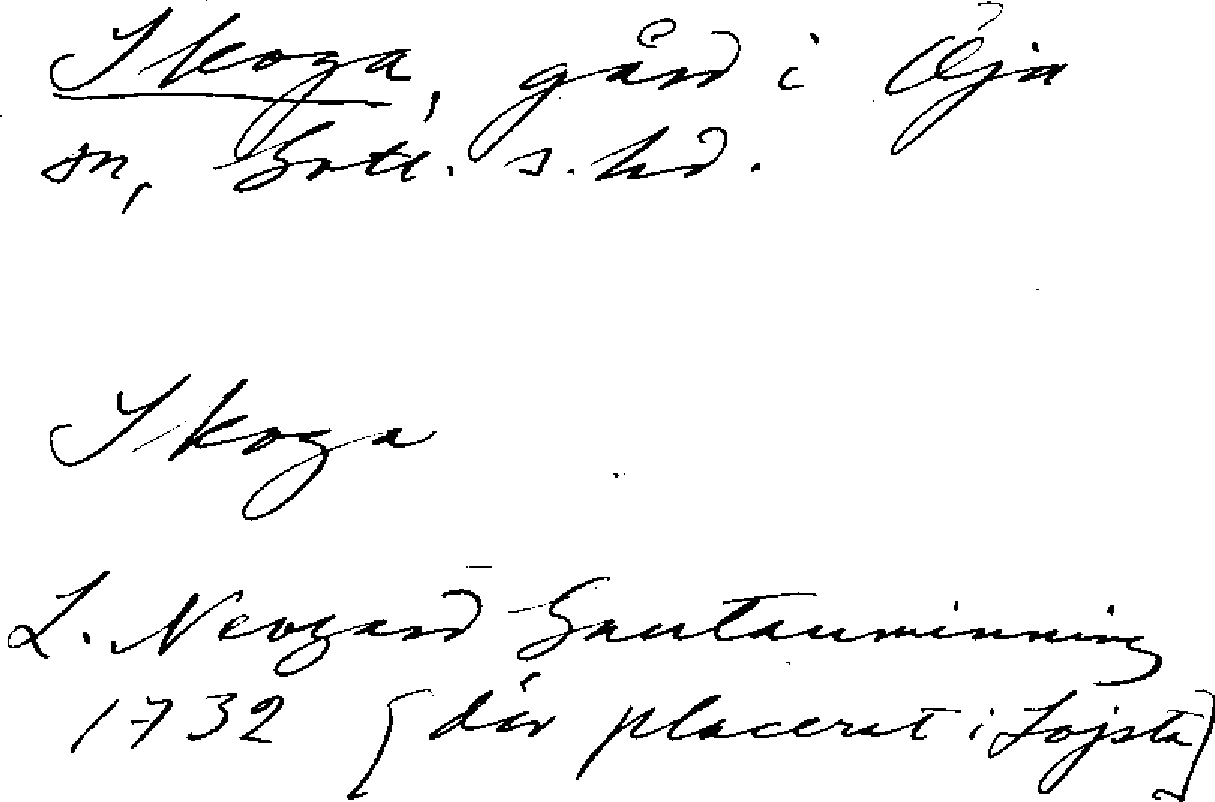 Skoga, gård i Öja
sn, Gotl. s. hd.
Skoga
L. Neogard Gautauminning
1732 [där placerat i Lojsta]